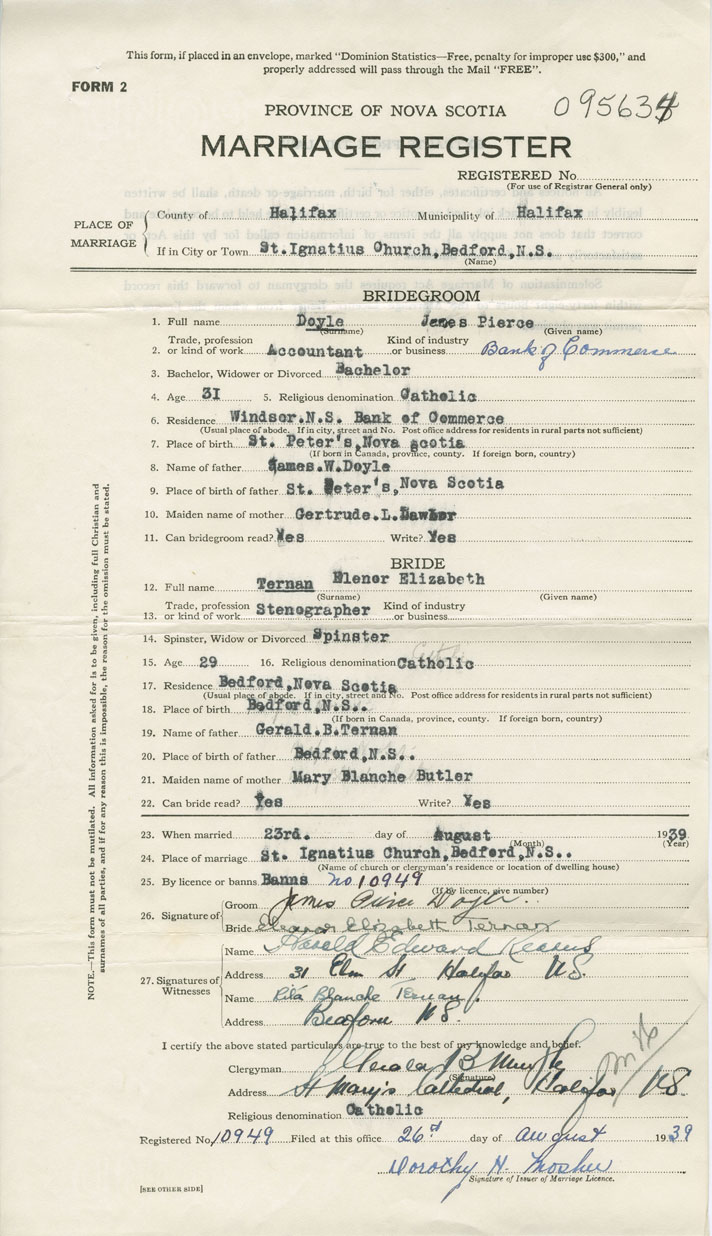 This form, if placed in an envelope, marked "Dominion Statistics—Free, penalty for improper use $300," and
properly addressed will pass through the Mail "FREE".
FORM 2
PROVINCE OF NOVA SCOTIA 095634
MARRIAGE REGISTER
REGISTERED No.
(For use of Registrar General only)
PLACE OF MARRIAGE
County of Halifax Municipality of Halifax
If in City or Town St.Ignatius Church,Bedford,N.S.
(Name)
BRIDEGROOM
1. Full name Doyle James Pierce
(Surname) (Given name)
2. Trade, profession or kind of work Accountant Kind of industry or business Bank of Commerce
3. Bachelor, Widower or Divorced Bachelor
4. Age 31 5. Religious denomination Catholic
6. Residence Windsor.N.S. Bank of Commerce
(Usual place of abode. If in city, street and No. Post office address for residents in rural parts not sufficient)
7. Place of birth St. Peter's,Nova scotia
(If born in Canada, province, county. If foreign born, country)
8. Name of father James.W.Doyle
9. Place of birth of father St. Peter's,Nova Scotia
10. Maiden name of mother Gertrude.L.
11. Can bridegroom read? Yes Write? Yes
BRIDE
12. Full name Ternan Elenor Elizabeth
(Surname) (Given name)
13. Trade, profession or kind of work Stenographer Kind of industry or business
14. Spinster, Widow or Divorced Spinster
15. Age 29 16. Religious denomination Catholic
17. Residence Bedford,Nova Scotia
(Usual place of abode. If in city, street and No. Post office address for residents in rural parts not sufficient)
18. Place of birth Bedford,N.S..
(If born in Canada, province, county. If foreign born, country)
19. Name of father Gerald.B.Ternan
20. Place of birth of father Bedford,N.S..
21. Maiden name of mother Mary Blanche Butler
22. Can bride read? Yes Write? Yes
23. When married 23rd. day of August 1939
(Month) (Year)
24. Place of marriage St. Ignatius Church,Bedford,N.S..
(Name of church or clergyman's residence or location of dwelling house)
25. By licence or banns Banns no 10949
(If by licence, give number)
26. Signature of
Groom James Pierce Doyle.
Bride Eleanor Elizabeth Ternan
27. Signatures of Witnesses
Name Harold Edward
Address 31 Elm St Halifax N.S.
Name Rita Blanche Ternan.
Address Bedford N.S.
I certify the above stated particulars are true to the best of my knowledge and belief.
Clergyman Gerald B Murphy
(Signature)
Address St Mary's Cathedral, Halifax N.S.
Religious denomination Catholic
Registered No. 10949 Filed at this office 26th day of August 1939
Dorothy H. Mosher
Signature of Issuer of Marriage Licence.
[SEE OTHER SIDE]
NOTE.—This form must not be mutilated. All information asked for is to be given, including full Christian and
surnames of all parties, and if for any reason this is impossible, the reason for the omission must be stated.